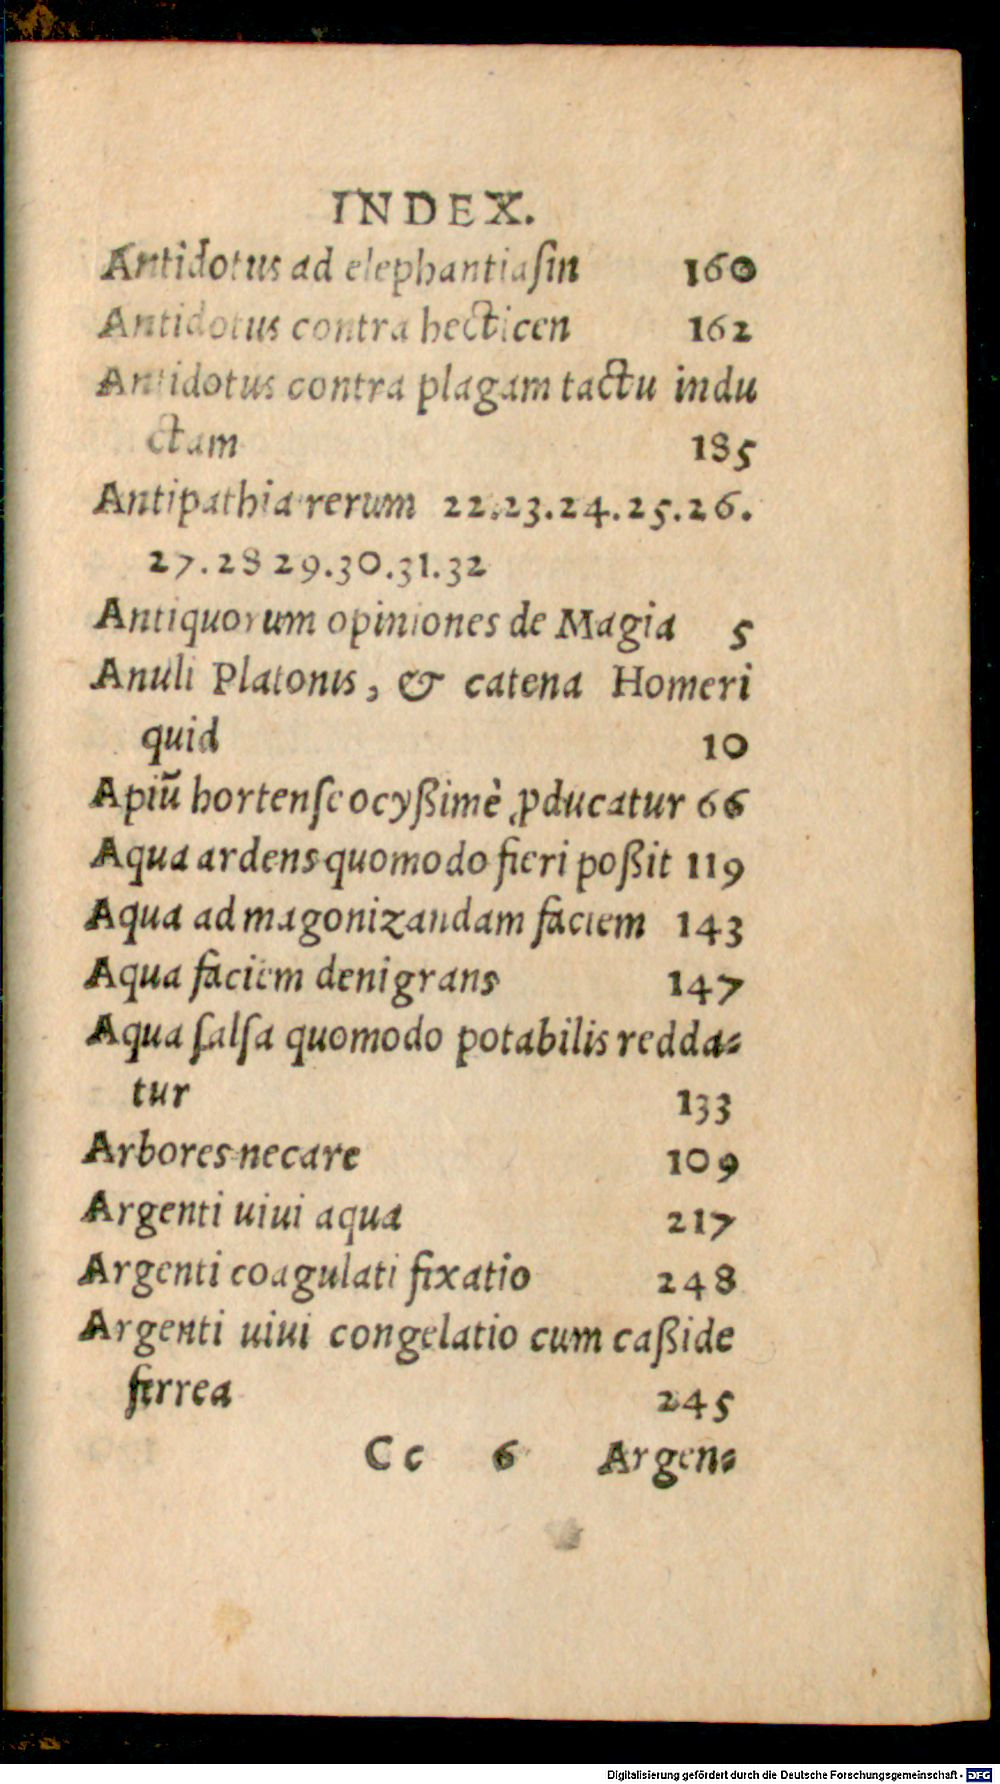 INDEX.
Antidotus ad elephantiaſin 160
Antidotus contra hecticen 162
Antidotus contra plagam tactu indu
ctam 185
Antipathia rerum 22.23.24.25.26.
27.28 29.30.31.32
Antiquorum opiniones de Magia 5
Anuli Platonis, & catena Homeri
quid 10
Apiū hortenſe ocyßimè ꝓducatur 66
Aqua ardens quomodo fieri poßit 119
Aqua ad magonizandam faciem 143
Aqua faciem denigrans 147
Aqua ſalſa quomodo potabilis redda⸗
tur 133
Arbores necare 109
Argenti uiui aqua 217
Argenti coagulati fixatio 248
Argenti uiui congelatio cum caßide
ferrea 245
Cc 6 Argen⸗
Digitalisierung gefördert durch die Deutsche Forschungsgemeinschaft - DFG